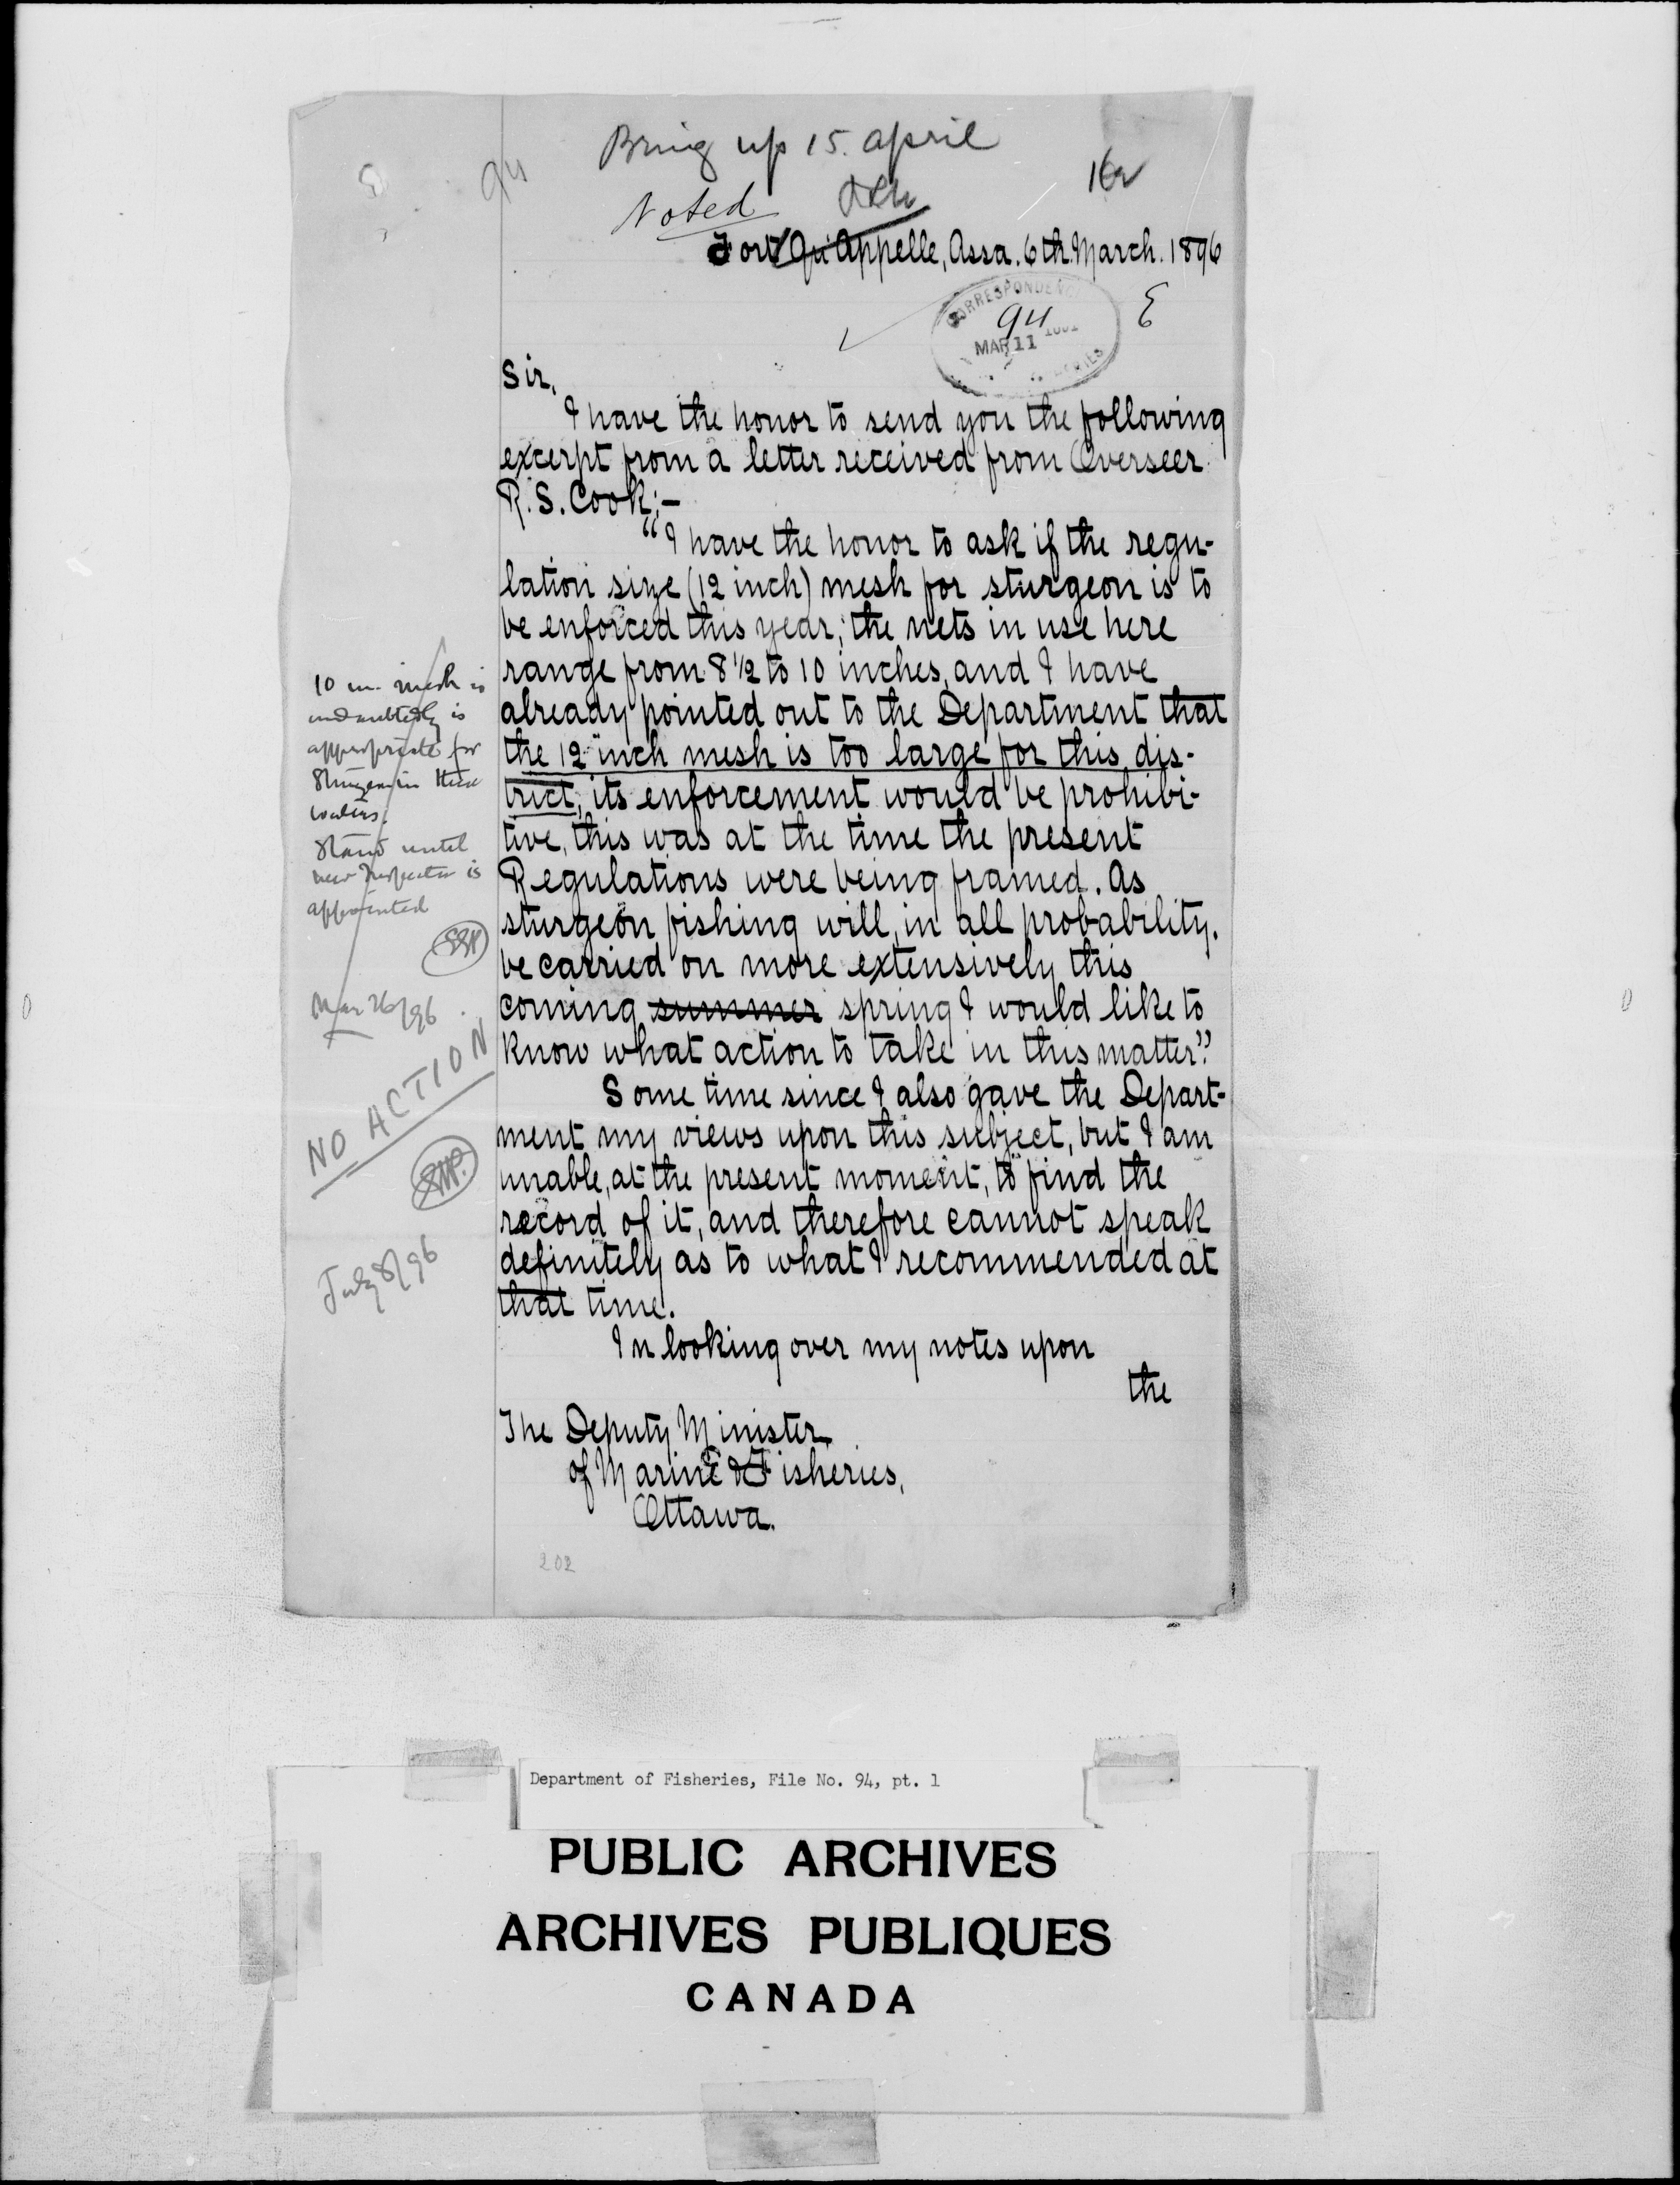 Bring up 15. april
Noted
94
Fort Qu'Appelle, Assa. 6th. March. 1896
CORRESPONDENCE
94
MAR 11
Sir,
I have the honor to send you the following
excerpt from a letter received from Overseer
R. S. Cook;-
"I have the honor to ask if the regu-
lation size (12 inch) mesh for sturgeon is to
be enforced this year; the nets in use here
range from 8 1/2 to 10 inches, and I have
already pointed out to the Department that
the 12 inch mesh is too large for this dis-
trict; its enforcement would be prohibi-
tive, this was at the time the present
Regulations were being framed. As
sturgeon fishing will, in all probability,
be carried on more extensively this
coming summer spring I would like to
know what action to take in this matter".
Some time since I also gave the Depart-
ment my views upon this subject, but I am
unable, at the present moment, to find the
record of it, and therefore cannot speak
definitely as to what I recommended at
that time.
In looking over my notes upon
the
The Deputy Minister
of Marine & Fisheries,
Ottawa.
202
10 in. mesh is
undoubtedly is
appropriate for
Sturgeon in these
waters.
Stand until
new Inspector is
appointed
Mar 26/96
NO ACTION
July 8/96
Department of Fisheries, File No. 94, pt. 1
PUBLIC ARCHIVES
ARCHIVES PUBLIQUES
CANADA